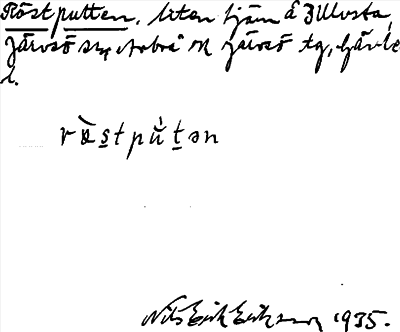 Röstputten, liten tjärn å Ullvsta,
Järvsö sn, Arbrå ok Järvsö tg, Gävle
l.
ròstpùtən
Nils Erik Eriksson 1935.